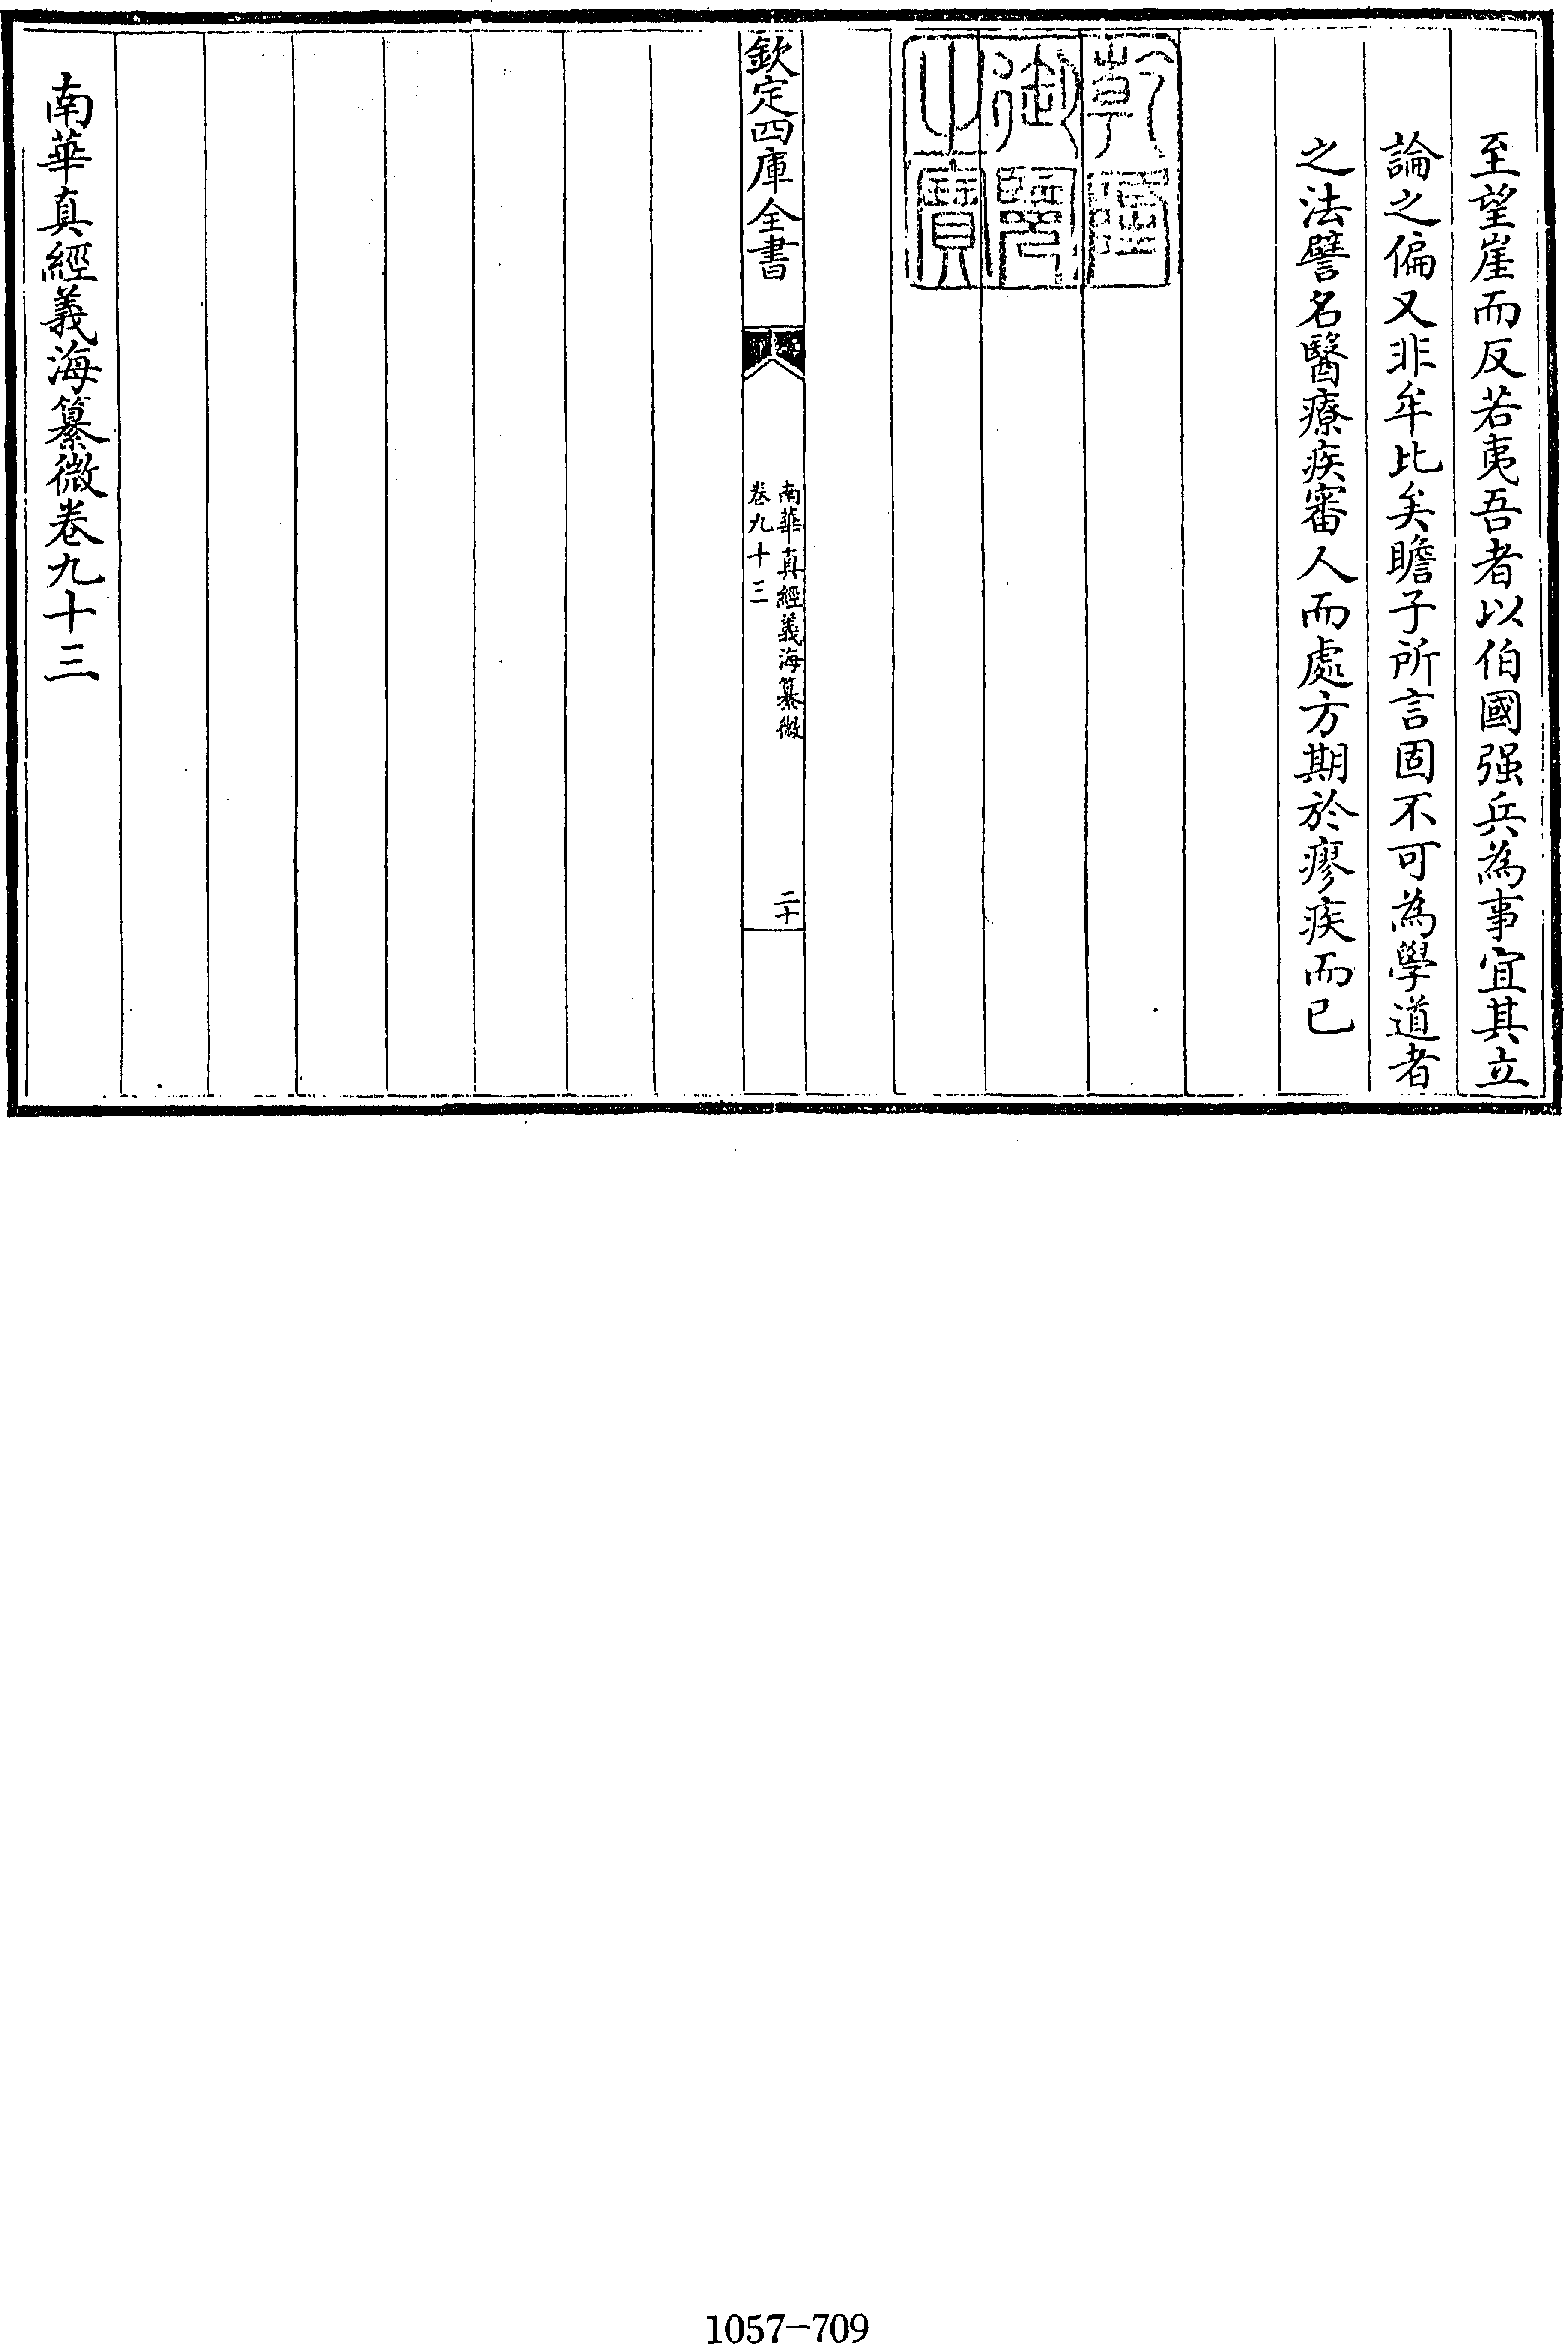 至望崖而反若夷吾者以伯國强兵為事宜其立
論之偏又非牟比矣瞻子所言固不可為學道者
之法譬名醫療疾審人而處方期於瘳疾而已
乾隆
御覽
之寶
欽定四庫全書
南華真經義海纂微
卷九十三
二十
南華真經義海纂微卷九十三
1057-709